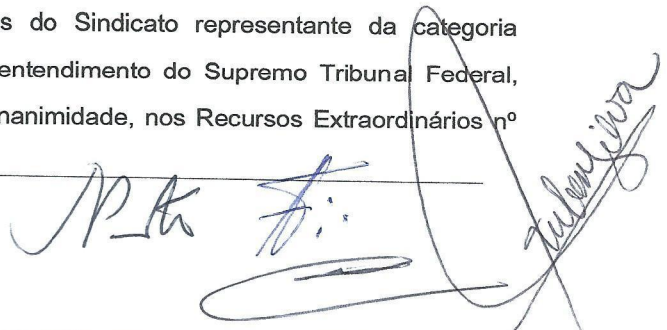 s do Sindicato representante da categoria
entendimento do Supremo Tribunal Federal,
nanimidade, nos Recursos Extraordinários nº